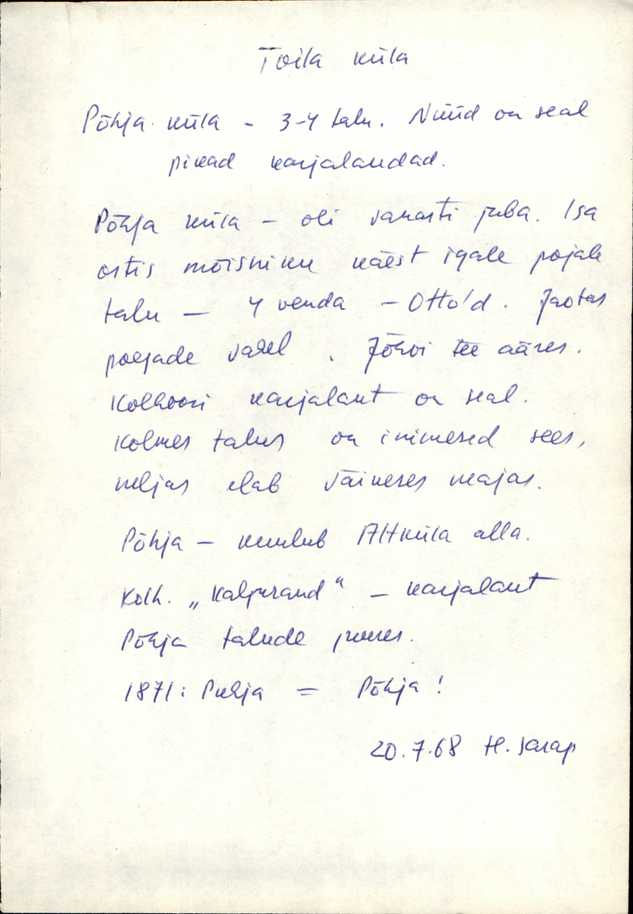 Toila küla
Põhja küla - 3-4 talu. Nüüd on seal
pikad karjalaudad.
Põhja küla - oli vanasti juba. Isa
ostis mõisniku käest igale pojale
talu - 4 venda - Otto'd. Jaotas
poegade vahel. Jõhvi tee ääres.
Kolhoosi karjalaut on seal.
Kolmes talus on inimesed sees,
neljas elab väikeses majas.
Põhja - kuulub Altküla alla.
Kolh. „Kalurand" - karjalaut
Põhja talude juures.
1871: Puhja = Põhja!
20.7.68 H.